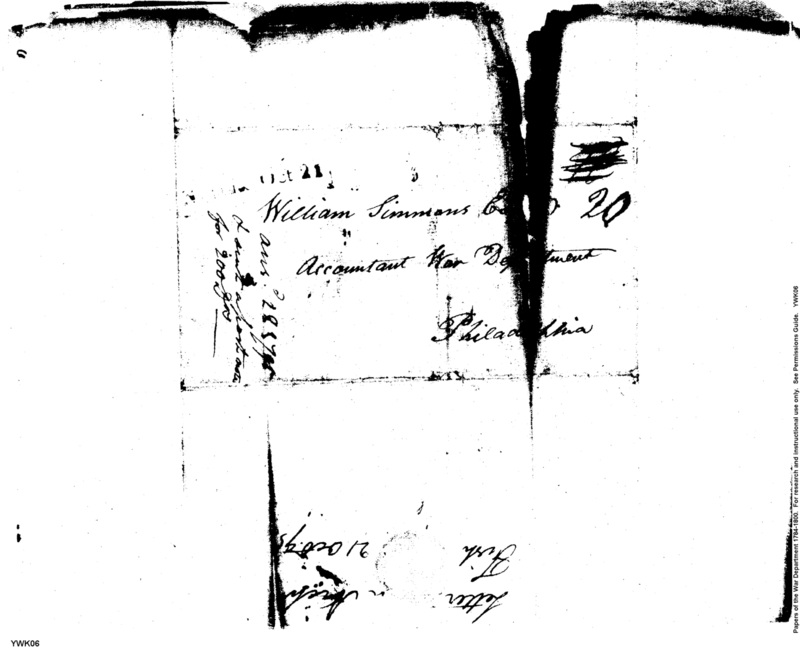 Oct 21
20
William Simmons Esq
Accountant War Department
Philadelphia
ans.
for 200 Dos
Letter
Fish
21 Oct 95
YWK06
Papers of the War Department 1784-1800. For research and instructional use only. See Permissions Guide. YWK06